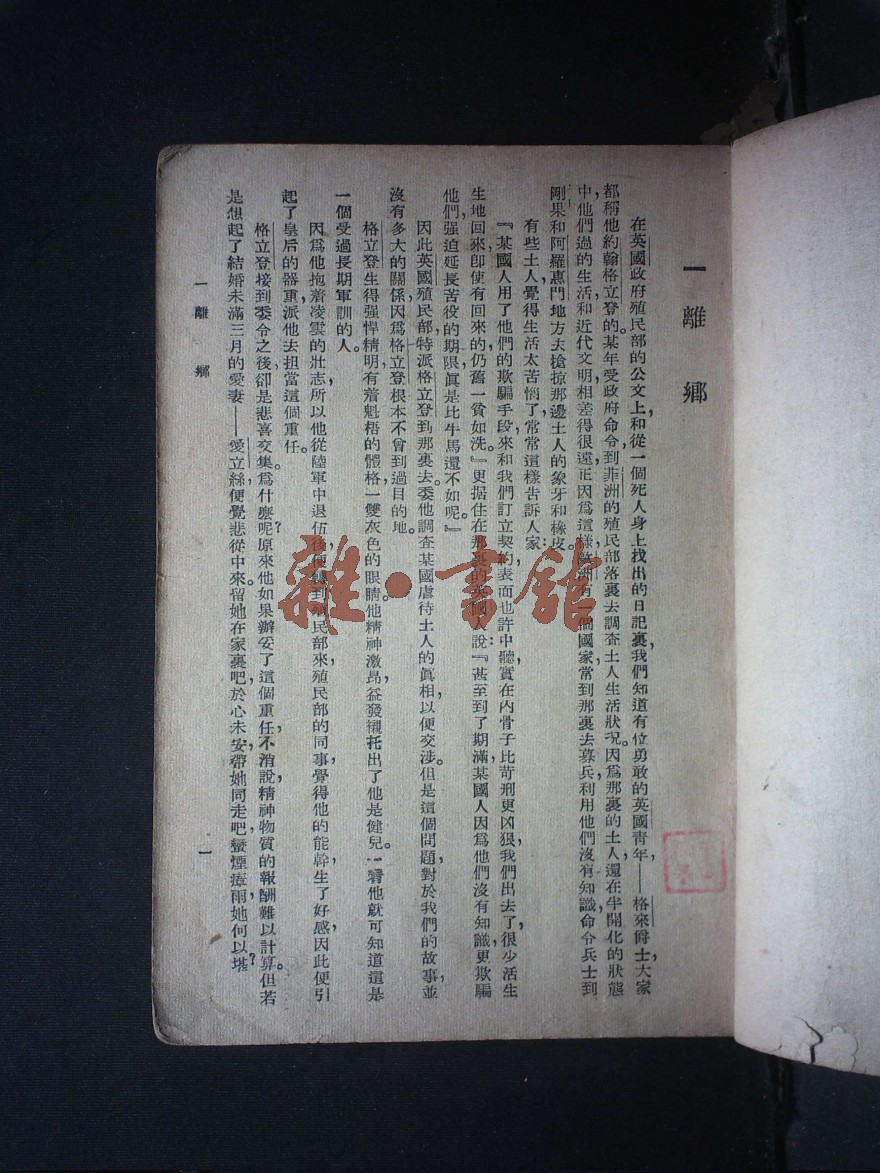 一離鄉
在英國政府殖民部的公文上，和從一個死人身上找出的日記裏，我們知道有位勇敢的英國青年，——格來爵士，大家
都稱他約翰格立登的。某年受政府命令，到菲洲的殖民部落裏去調查土人生活狀況。因爲那裏的土人，還在半開化的狀態
中，他們過的生活和近代文明相差得很遠，正因爲這樣，歐洲有一個國家，常到那裏去募兵，利用他們沒有知識，命令兵士到
剛果和阿羅惠門地方去搶掠那邊土人的象牙和橡皮。
有些土人，覺得生活太苦惱了，常常這樣告訴人家：
『某國人用了他們的欺騙手段，來和我們訂立契約，表面也許中聽，實在內骨子比苛刑更凶狠，我們出去了，很少活生
生地回來，卽使有回來的，仍舊一貧如洗。』更据住在那裏的英國人說：『甚至到了期滿，某國人因爲他們沒有知識，更欺騙
他們，强迫延長苦役的期限，眞是比牛馬還不如呢。』
因此英國殖民部特派格立登到那裏去。委他調查某國虐待土人的眞相，以便交涉。但是這個問題，對於我們的故事，並
沒有多大的關係，因爲格立登根本不曾到過目的地。
格立登生得强悍精明，有着魁梧的體格，一雙灰色的眼睛，他精神激昂，益發襯托出了他是健兒。一看他就可知道這是
一個受過長期軍訓的人。
因爲他抱着凌雲的壯志，所以他從陸軍中退伍後，便轉到殖民部來，殖民部的同事，覺得他的能幹，生了好感，因此便引
起了皇后的器重，派他去担當這個重任。
格立登接到委令之後，卻是悲喜交集。爲什麼呢？原來他如果辦妥了這個重任，不消說，精神物質的報酬，難以計算。但若
是想起了結婚未滿三月的愛妻——愛立絲，便覺悲從中來。留她在家裏吧，於心未安，帶她同走吧，蠻煙瘴雨，她何以堪？
一離鄉
一
雜·書舘